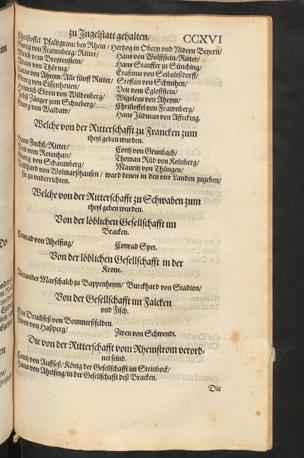 zu Ingelstatt gehalten/ CCXVI
Christoffel Pfaltzgrave bey Rhein/ Hertzog in Obern und Nidern Beyern/
Georg von Frawnberg/Ritter/ Hans von Wolffstein/Ritter/
Ulrich von Breytenstein/ Hans Stauffer zu Sünching/
Adam von Thöring/ Erasmus von Seiboltsdorff/
Lucas von Alheym/Alle fünff Ritter/ Steffan von Schmihen/
Georg von Eissenhouen/ Veit von Eglofftein/
Heinrich Ebron von Wildenberg/ Wigoleus von Alheym/
Jobst Zänger zum Schneberg/ Christoffel von Frawnberg/
Georg von Waldaw/ Hans Jüdman von Affecking.
Welche von der Ritterschafft zu Francken zum
theyl geben wurden.
Hans Fuchs/Ritter/ Contz von Grumbach/
von Rosenhan/ Thoman Rüd von Kolnberg/
Georg von Schaumberg/ Mauritz von Thüngen/
von Wolmarßhausen/ ward denen in den vier Landen zugeben/
sie zu underrichten.
Welche von der Ritterschafft zu Schwaben zum
theyl geben wurden.
Von der löblichen Gesellschafft im
Bracken.
Conrad von Ahelfing/ Conrad Spet.
Von der löblichen Gesellschafft in der
Krone.
Alexander Marschalck zu Bappenheym/ Burckhard von Stadion/
Von der Gesellschafft im Falcken
und Fisch.
Ein Druchseß von Bommerßfelden.
Zwen von Haßperg/ Zwen von Schwendi.
Die von der Ritterschafft vom Rheinstrom verord-
net seind.
von Auffseß/König der Gesellschafft im Steinbock/
Hans von Ahelfing/in der Gesellschafft deß Bracken.
Die